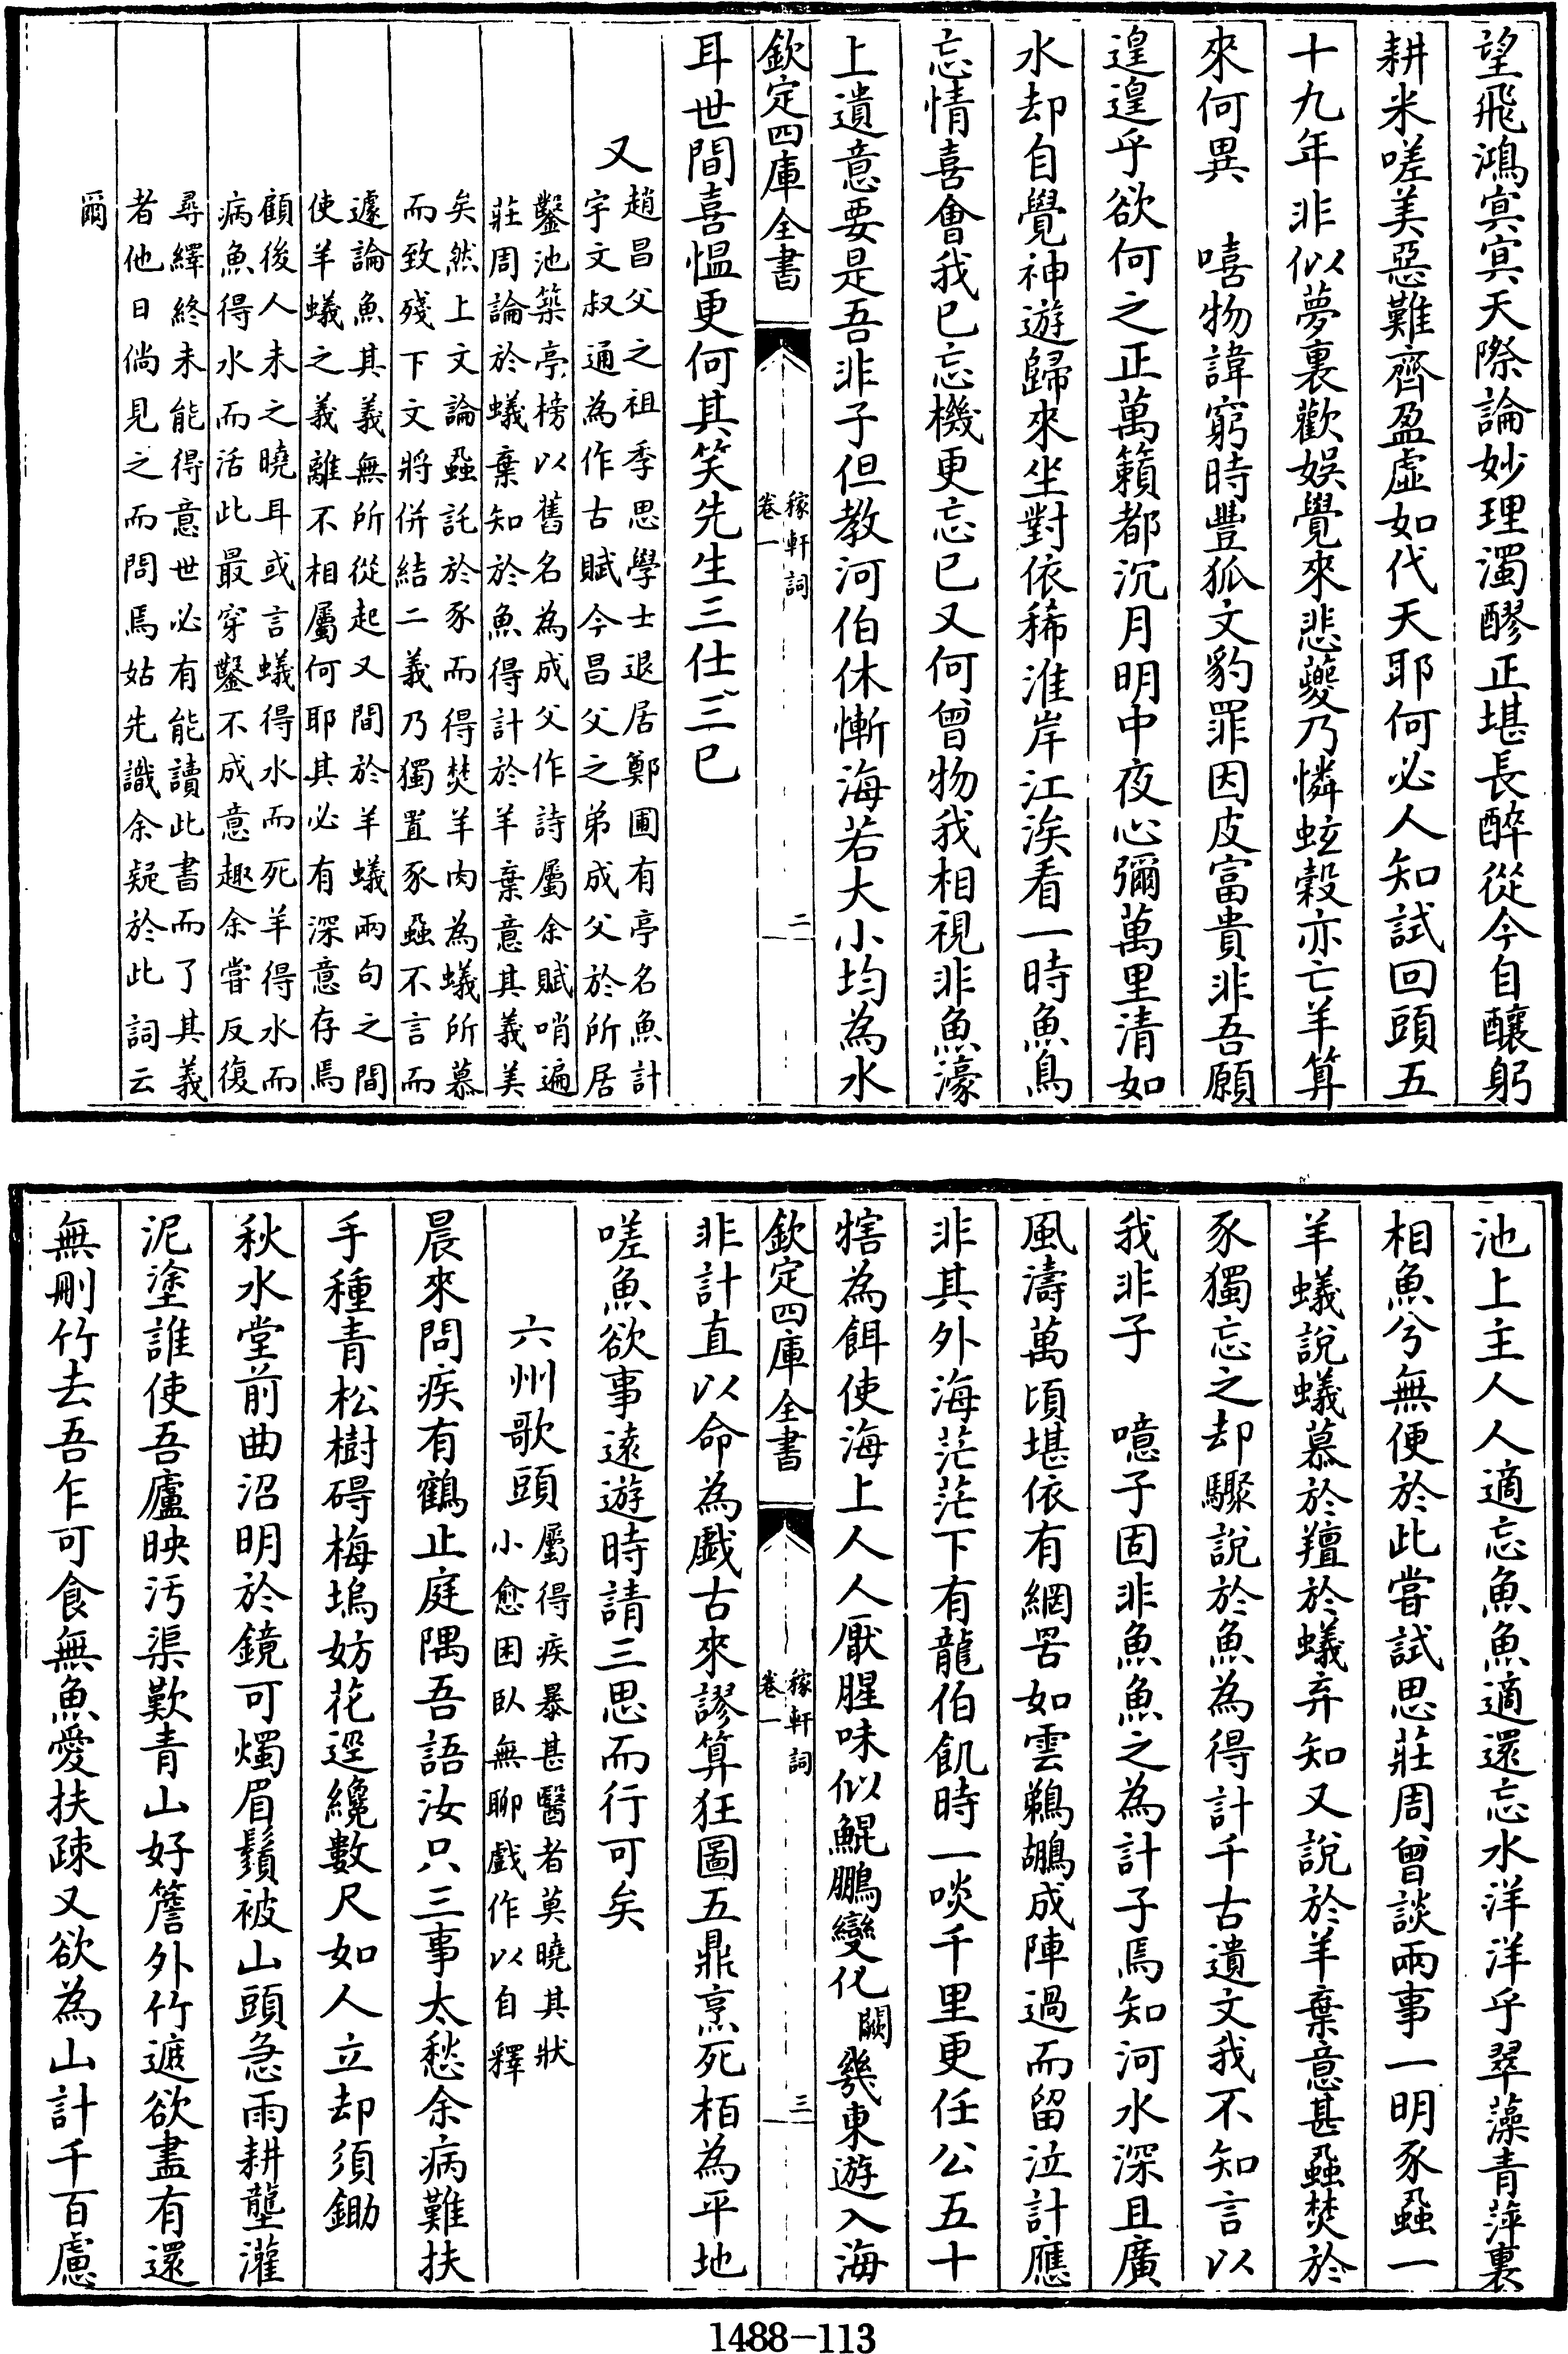 望飛鴻㝠㝠天際論妙理濁醪正堪長醉從今自釀躬
耕米嗟美惡難齊盈虛如代天耶何必人知試回頭五
十九年非似夢裏歡娛覺來悲夔乃憐蚿穀亦亡羊算
來何異　嘻物諱窮時豐狐文豹罪因皮富貴非吾願
遑遑乎欲何之正萬籟都沉月明中夜心彌萬里清如
水却自覺神遊歸來坐對依稀淮岸江涘看一時魚鳥
忘情喜會我已忘機更忘已又何曾物我相視非魚濠
上遺意要是吾非子但教河伯休慚海若大小均為水
欽定四庫全書
稼軒詞
卷一
二
耳世間喜慍更何其笑先生三仕三已
又
趙昌父之祖季思學士退居鄭圃有亭名魚計
宇文叔通為作古賦今昌父之弟成父於所居
鑿池築亭榜以舊名為成父作詩屬余賦哨遍
莊周論於蟻棄知於魚得計於羊棄意其義美
矣然上文論蝨託於豕而得焚羊肉為蟻所慕
而致殘下文將併結二義乃獨置豕蝨不言而
遽論魚其義無所從起又間於羊蟻兩句之間
使羊蟻之義離不相屬何耶其必有深意存焉
顧後人未之曉耳或言蟻得水而死羊得水而
病魚得水而活此最穿鑿不成意趣余嘗反復
尋繹終未能得意世必有能讀此書而了其義
者他日倘見之而問焉姑先識余疑於此詞云
爾
池上主人人適忘魚魚適還忘水洋洋乎翠藻青萍裏
相魚兮無便於此嘗試思莊周曾談兩事一明豕蝨一
羊蟻說蟻慕於羶於蟻弃知又說於羊棄意甚蝨焚於
豕獨忘之却驟說於魚為得計千古遺文我不知言以
我非子　噫子固非魚魚之為計子焉知河水深且廣
風濤萬頃堪依有網罟如雲鵜鶘成陣過而留泣計應
非其外海茫茫下有龍伯飢時一啖千里更任公五十
犗為餌使海上人人厭腥味似鯤鵬變化闕幾東遊入海
欽定四庫全書
稼軒詞
卷一
三
非計直以命為戲古來謬算狂圖五鼎烹死栢為平地
嗟魚欲事遠遊時請三思而行可矣
六州歌頭
屬得疾暴甚醫者莫曉其狀
小愈困臥無聊戲作以自釋
晨來問疾有鶴止庭隅吾語汝只三事太愁余病難扶
手種青松樹碍梅塢妨花逕纔數尺如人立却須鋤
秋水堂前曲沼明於鏡可燭眉鬚被山頭急雨耕壟灌
泥塗誰使吾廬映汚渠歎青山好簷外竹遮欲盡有還
無刪竹去吾乍可食無魚愛扶疎又欲為山計千百慮
1488-113